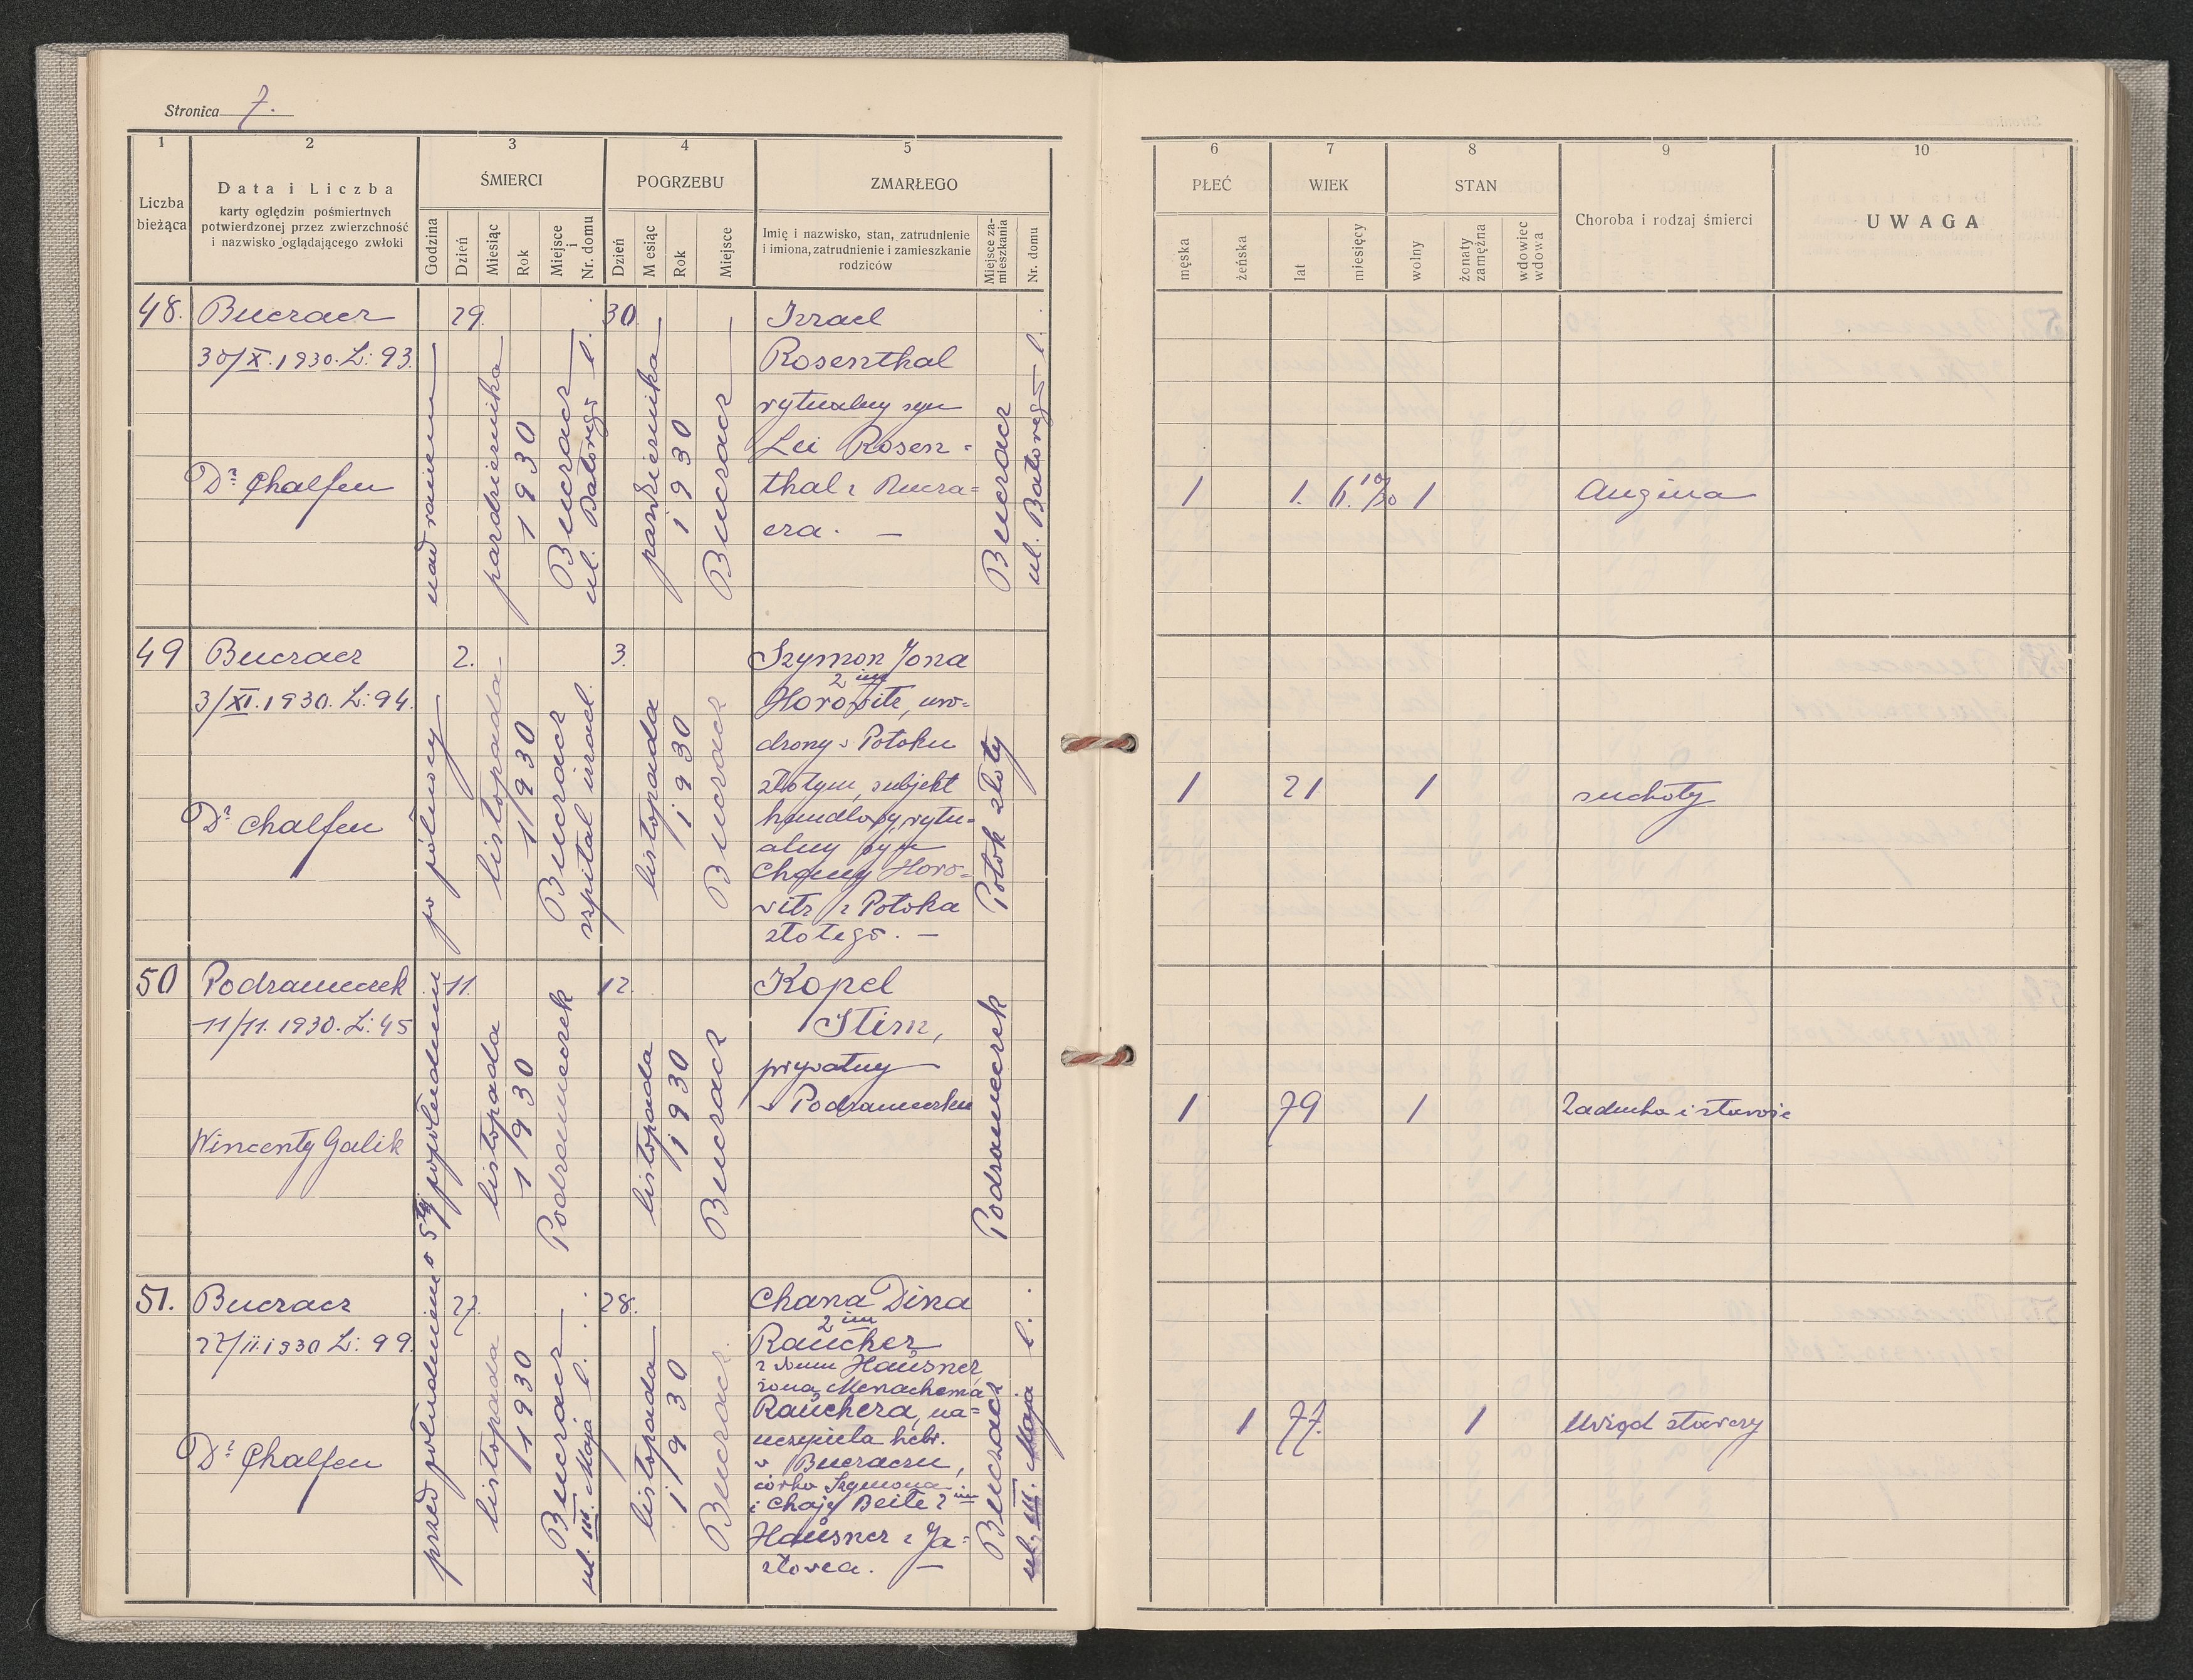 Stronica 7.
1
2
3
4
5
Liczba bieżąca
Data i Liczba
karty oględzin pośmiertnych
potwierdzonej przez zwierzchność
i nazwisko oglądającego zwłoki
ŚMIERCI
Godzina
Dzień
Miesiąc
Rok
Miejsce i Nr. domu
POGRZEBU
Dzień
M esiąc
Rok
Miejsce
ZMARŁEGO
Imię i nazwisko, stan, zatrudnienie
i imiona, zatrudnienie i zamieszkanie
rodziców
Miejsce za-
mieszkania
Nr. domu
6
7
8
9
10
PŁEĆ
męska
żeńska
WIEK
lat
miesięcy
STAN
wolny
żonaty
zamężna
wdowiec
wdowa
Choroba i rodzaj śmierci
UWAGA
48.
Buczacz
30/X. 1930. L: 93.
Dr Chalfen
nad ranem
29.
października
1930
Buczacz
ul. Batorego l.
30.
października
1930
Buczacz
Izrael
Rosenthal
rytualny syn
Lei Rosen=
thal z Bucza=
cza. —
Buczacz
ul. Batorego l.
1
1.
6. 10/30
1
Angina
49
Buczacz
3/XI. 1930. L: 94.
Dr Chalfen
po północy
2.
listopada
1930
Buczacz
szpital izrael.
3.
listopada
1930
Buczacz
Szymon Jona
2 im
Horowitz, uro=
dzony w Potoku
złotym, subjekt
handlowy, rytu=
alny syn
Chany Horo=
witz z Potoka
złotego. —
Potok złoty
1
21
1
suchoty
50
Podzameczek
11/11. 1930. L: 45
Wincenty Galik
o 5tej popołudniu
11.
listopada
1930
Podzameczek
12.
listopada
1930
Buczacz
Kopel
Stirn,
prywatny
w Podzameczku
Podzameczek
1
79
1
Zaducha i starość
51.
Buczacz
27/11. 1930 L: 99.
Dr Chalfen
przed południem
27.
listopada
1930
Buczacz
ul. III. Maja l.
28.
listopada
1930
Buczacz
Chana Dina
2 im
Raucher
z domu Hausner
żona Menachema
Rauchera, na=
uczyciela hebr.
w Buczaczu,
córka Szymona
i Chaji Beile 2 im
Hausner z Ja=
złowca. —
Buczacz
ul. III. Maja l.
1
77.
1
Uwiąd starczy